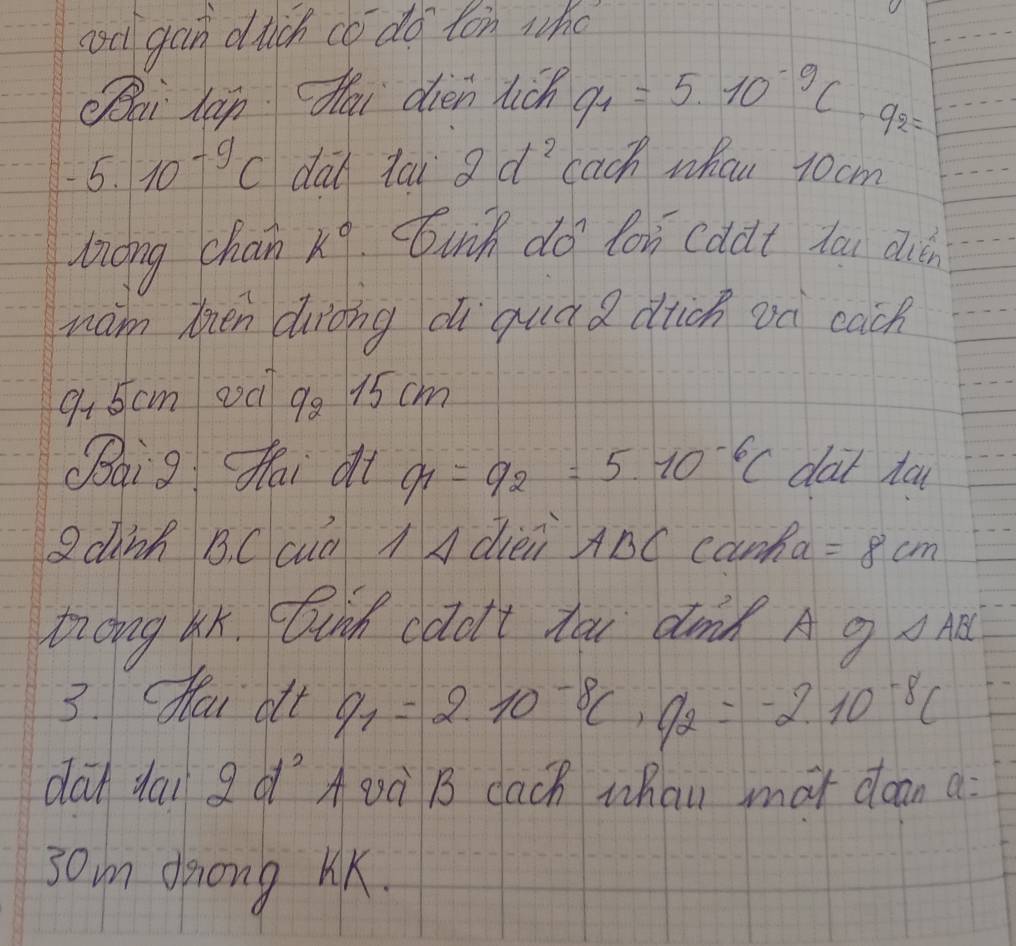 và gần đtích có độ lớn nhỏ
Bài tập: Hai điện tích q1 = 5.10⁻⁹C, q2 =
-5.10⁻⁹C đặt tại 2 đ² cách nhau 10cm
trong chân k⁰. Tính độ lớn cđđt tại điển
nằm trên đường đi qua 2 đtích và cách
q1 5cm và q2 15cm
Bài 2: Hai đt q1 = q2 = 5.10⁻⁶C đặt tại
2 đỉnh B,C của 1 Δ điều ABC cạnh a = 8cm
trong KK. Tính cđđt tại đỉnh A g Δ ABC
3. Hai đt q1 = 2.10⁻⁸C, q2 = -2.10⁻⁸C
đặt tại 2 đ² A và B cách nhau một đoạn a =
30m trong KK.